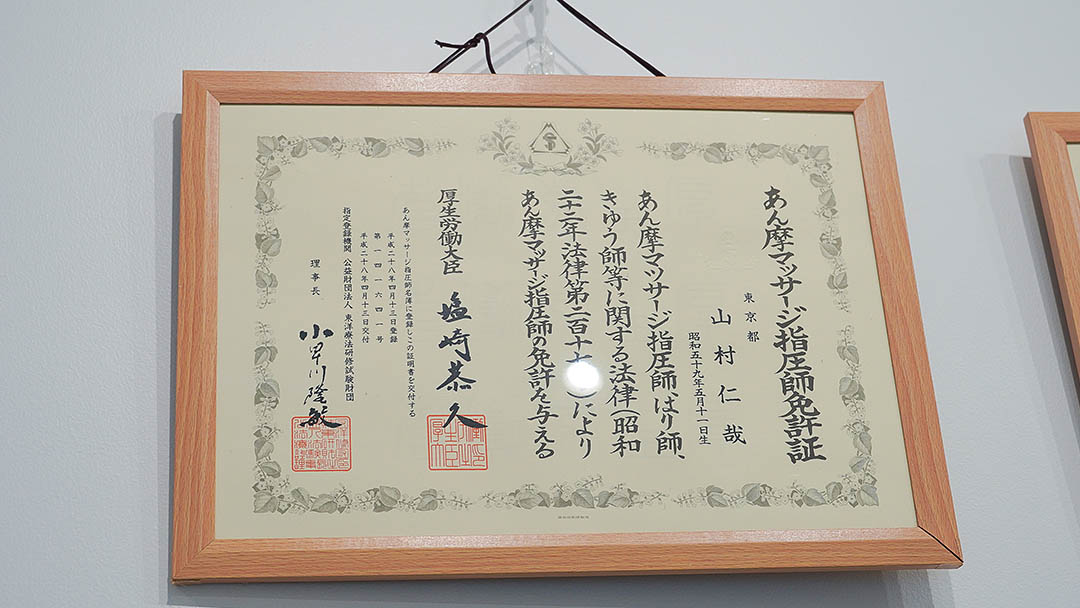 あん摩マッサージ指圧師免許証
東京都
山村仁哉
昭和五十九年五月十一日生
あん摩マツサージ指圧師、はり師、
きゆう師等に関する法律(昭和
二十二年法律第二百十七)により
あん摩マッサージ指圧師の免許を与える
厚生労働大臣 塩崎恭久
あん摩マッサージ指圧師名簿に登録しこの証明書を交付する
平成二十八年四月十三日登録
第一四一六四一号
平成二十八年四月十三日交付
指定登録機関 公益財団法人 東洋療法研修試験財団
理事長 小早川隆敏